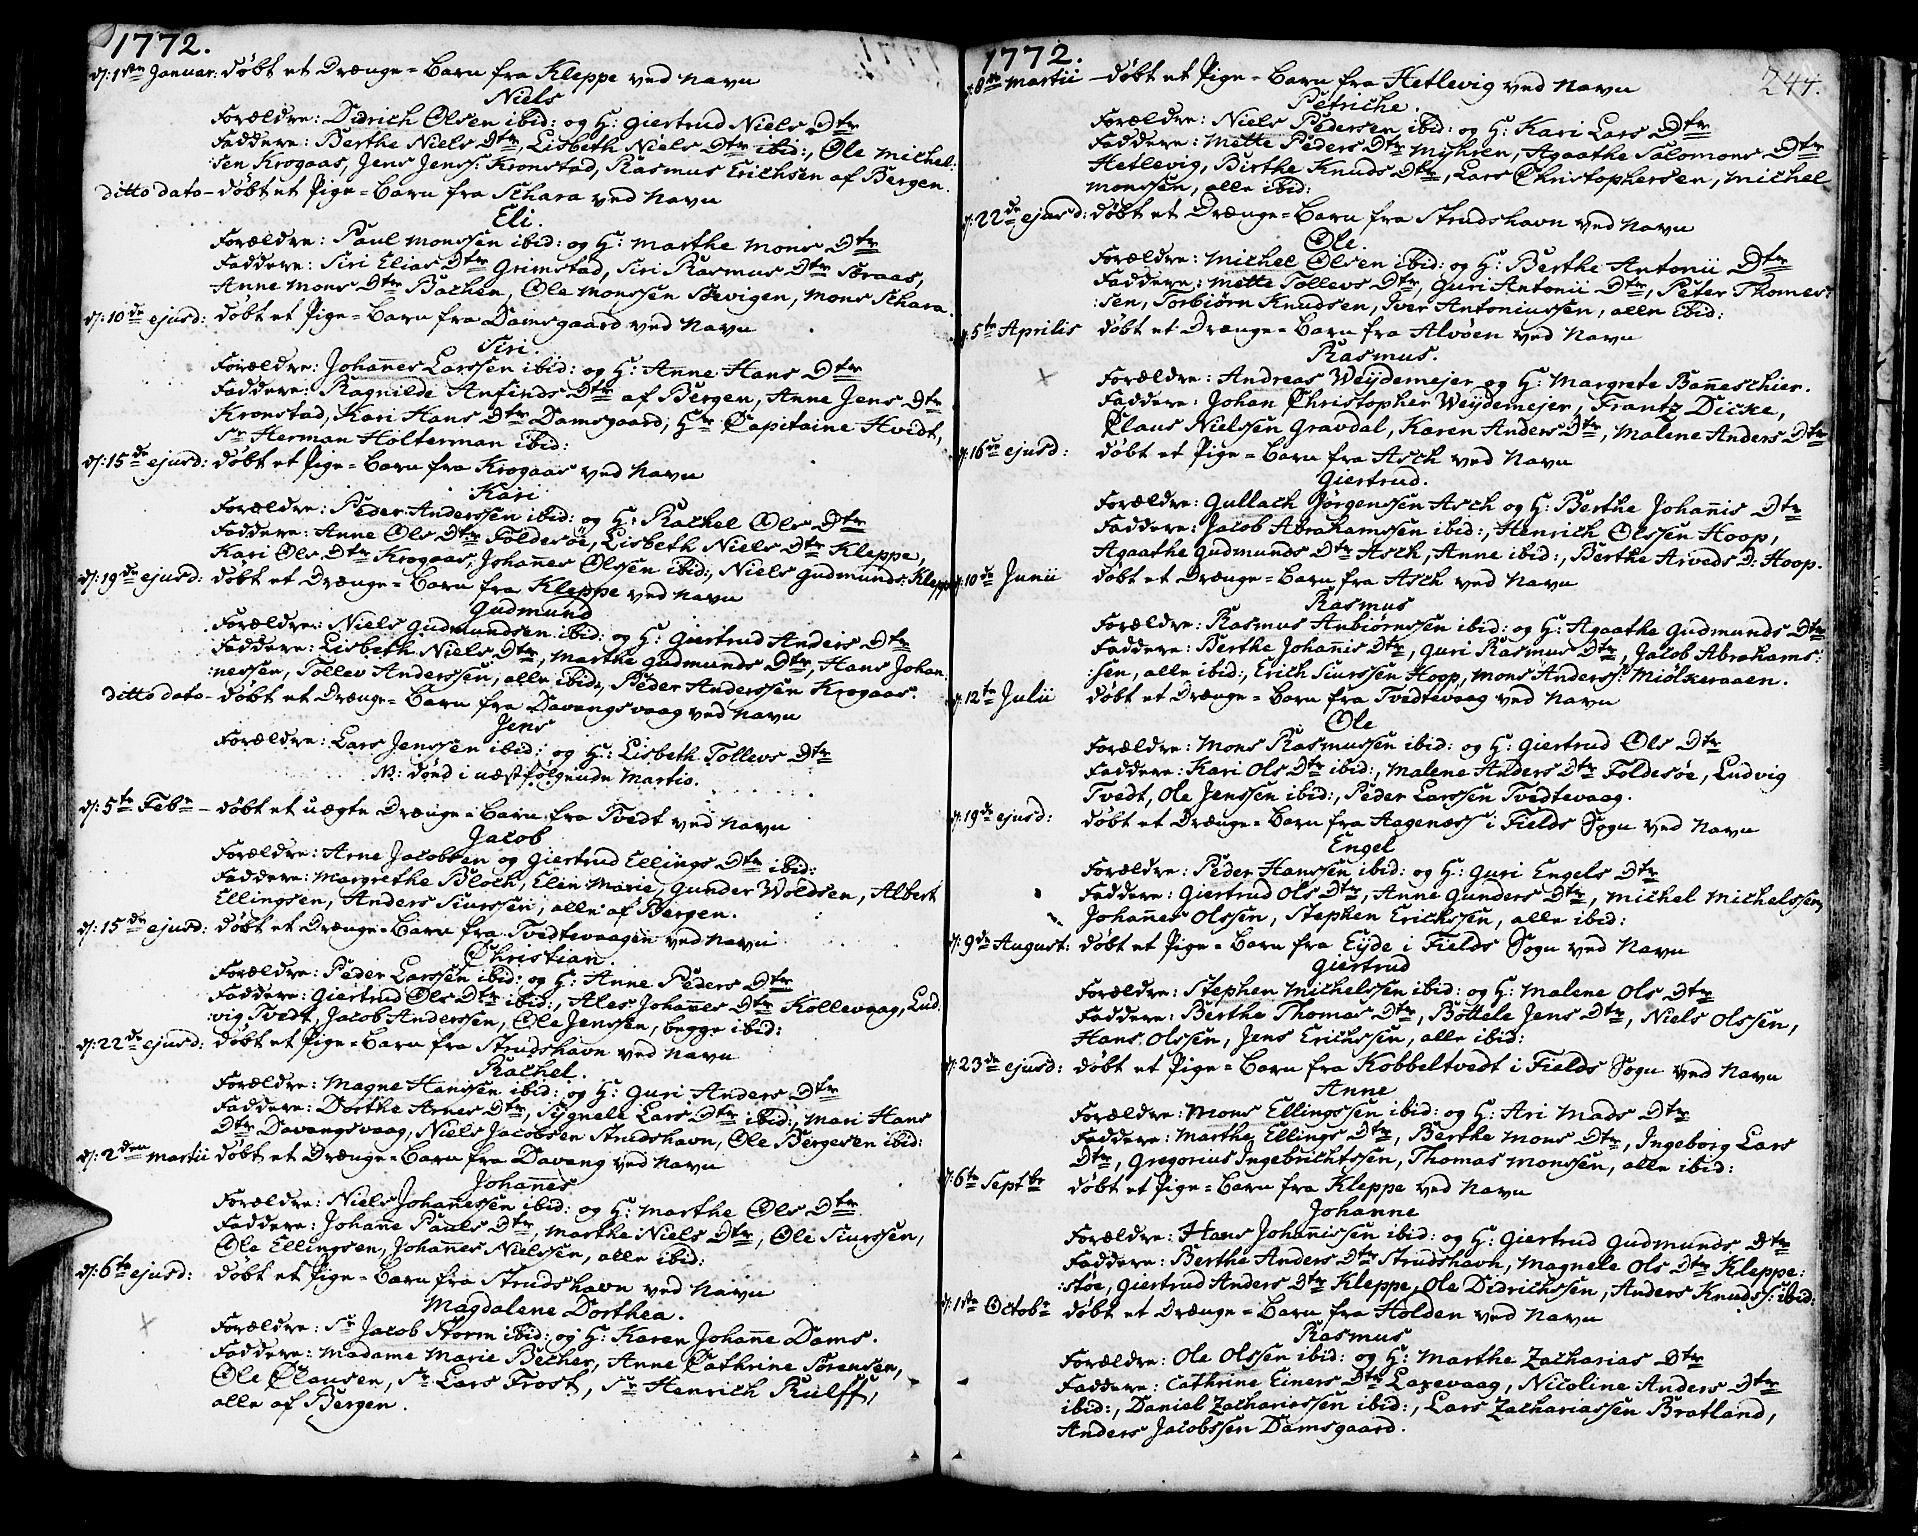 1772.
d: 1ste Januar. døbt et Drænge-Barn fra Kleppe ved Navn
Niels
Forældre: Didrich Olsen ibid: og H: Giertrud Niels Dtr
Faddere: Berthe Niels Dtr, Lisbeth Niels Dtr ibid:, Ole Michel:
:sen Krogaas, Jens Jenss: Kronstad, Rasmus Erichsen af Bergen.
ditto dato - døbt et Pige-Barn fra Schara ved Navn
Eli.
Forældre: Paul Monssen ibid: og H: Marthe Mons Dtr
Faddere: Siri Elias Dtr Grimstad, Siri Rasmus Dtr Straas,
Anne Mons Dtr Bachen, Ole Monssen Sævigen, Mons Schara.
d: 10de ejusd: døbt et Pige-Barn fra Damsgaard ved Navn
Siri.
Forældre: Johannes Larssen ibid: og H: Anne Hans Dtr
Faddere: Ragnilde Anfinds Dtr af Bergen, Anne Jens Dtr
Kronstad, Kari Hans Dtr Damsgaard, Hr Capitaine Hvidt,
Sr Herman Holterman ibid:
d: 15de ejusd: døbt et Pige-Barn fra Krogaas ved Navn
Kari
Forældre: Peder Anderssen ibid: og H: Rachel Ols Dtr
Faddere: Anne Ols Dtr Foldesøe, Lisbeth Niels Dtr Kleppe,
Kari Ols Dtr Krogaas, Johannes Olssen ibid:, Niels Gudmunds: Kleppe
d: 19de ejusd: døbt et Drænge-Barn fra Kleppe ved Navn
Gudmund
Forældre: Niels Gudmundsen ibid: og H: Giertrud Anders Dtr
Faddere: Lisbeth Niels Dtr, Marthe Gudmunds Dtr, Hans Johan
:nessen, Tollev Anderssen, alle ibid:, Peder Anderssen Krogaas.
ditto dato - døbt et Drænge-Barn fra Davangsvaag ved Navn
Jens
Forældre: Lars Jenssen ibid: og H: Lisbeth Tollevs Dtr
NB: død i næstfølgende Martio.
d: 5te Febr - døbt et uægte Drænge-Barn fra Tvedt ved Navn
Jacob
Forældre: Arne Jacobsen og Giertrud Ellings Dtr ibid:
Faddere: Margrethe Bloch, Elin Marie, Gunder Woldsen, Albert
Ellingsen, Anders Siurssen, alle af Bergen.
d: 15de ejusd: døbt et Drænge-Barn fra Tvedtevaagen ved Navn
Christian.
Forældre: Peder Larssen ibid: og H: Anne Peders Dtr
Faddere: Giertrud Ols Dtr ibid:, Ales Johannes Dtr Kollevaag, Lud
:vig Tvedt, Jacob Anderssen, Ole Jenssen, begge ibid:
d: 22de ejusd: døbt et Pige-Barn fra Strudshavn ved Navn
Rachel.
Forældre: Magne Hanssen ibid: og H: Guri Anders Dtr
Faddere: Dorthe Arnes Dtr, Signele Lars Dtr ibid:, Mari Hans
Dtr Davangsvaag, Niels Jacobsen Strudshavn, Ole Bergesen ibid:
d: 2den Martii døbt et Drænge-Barn fra Davang ved Navn
Johannes
Forældre: Niels Johannessen ibid: og H: Marthe Ols Dtr
Faddere: Johane Pauls Dtr, Marthe Niels Dtr, Ole Siurssen,
Ole Ellingsen, Johannes Nielssen, alle ibid:
d: 6te ejusd: døbt et Pige-Barn fra Strudshavn ved Navn
Magdalene Dorthea.
Forældre: Sr Jacob Storm ibid: og H: Karen Johanne Dams.
Faddere: Madame Marie Becher, Anne Cathrine Sørensen,
Ole Clausen, Sr Lars Frost, Sr Henrich Rulffs,
alle af Bergen.
1772.
244.
d: 8de Martii - døbt et Pige-Barn fra Hetlevig ved Navn
Petriche.
Forældre: Niels Pedersen ibid: og H: Kari Lars Dtr
Faddere: Mette Peders Dtr Myhren, Agaathe Salomons Dtr
Hetlevig, Birthe Knuds Dtr, Lars Christophersen, Michel
Monssen, alle ibid:
d: 22de ejusd: døbt et Drænge-Barn fra Strudshavn ved Navn
Ole.
Forældre: Michel Olsen ibid: og H: Berthe Antonii Dtr
Faddere: Mette Tollevs Dtr, Guri Antonii Dtr, Peter Thomes:
:sen, Torbiørn Knudsen, Iver Antoniussen, alle ibid:
d: 5te Aprilis døbt et Drænge-Barn fra Alvøen ved Navn
Rasmus.
Forældre: Andreas Weijdemejer og H: Margrete Banneschier.
Faddere: Johan Christopher Weijdemejer, Frantz Dicke,
Claus Nielssen Gravdal, Karen Anders Dtr, Malene Anders Dtr
d: 16de ejusd: døbt et Pige-Barn fra Asch ved Navn
Giertrud.
Forældre: Gullach Jørgenssen Asch og H: Berthe Johannis Dtr
Faddere: Jacob Abrahamssen ibid:, Henrich Olssen Hoop,
Agaathe Gudmunds Dtr Asch, Anne ibid:, Berthe Arveds D: Hoop.
d: 10de Junii døbt et Drænge-Barn fra Asch ved Navn
Rasmus
Forældre: Rasmus Anbiørnssen ibid: og H: Agaathe Gudmunds Dtr
Faddere: Berthe Johannis Dtr, Guri Rasmus Dtr, Jacob Abrahams:
:sen, alle ibid:, Erich Siurssen Hopp, Mons Anderss: Miølkeraaen.
d: 12te Julii døbt et Drænge-Barn fra Tvedtevaag ved Navn
Ole
Forældre: Mons Rasmussen ibid: og H: Giertrud Ols Dtr
Faddere: Kari Ols Dtr ibid:, Malene Anders Dtr Foldesøe, Ludvig
Tvedt, Ole Jenssen ibid:, Peder Larssen Tvedtevaag.
d: 19de ejusd: døbt et Drænge-Barn fra Aagenæss i Fields Sogn ved Navn
Engel
Forældre: Peder Hanssen ibid: og H: Guri Engels Dtr
Faddere: Giertrud Ols Dtr, Anne Gunders Dtr, Michel Michelssen
Johannes Olssen, Stephen Erichssen, alle ibid:
d: 9de August: døbt et Pige-Barn fra Eyde i Fields Sogn ved Navn
Giertrud
Forældre: Stephen Michelssen ibid: og H: Malene Ols Dtr
Faddere: Berthe Thomas Dtr, Bottele Jens Dtr, Niels Olssen,
Hans Olssen, Jens Erichssen, alle ibid:
d: 23de ejusd: døbt et Pige-Barn fra Kobbeltvedt i Fields Sogn ved Navn
Anne
Forældre: Mons Ellingssen ibid: og H: Ari Mads Dtr
Faddere: Marthe Ellings Dtr, Berthe Mons Dtr, Ingeborg Lars
Dtr, Gregorius Ingebrichtssen, Thomas Monssen, alle ibid:
d: 6te Septbr døbt et Pige-Barn fra Kleppe ved Navn
Johanne
Forældre: Hans Johanissen ibid: og H: Giertrud Gudmunds Dtr
Faddere: Berthe Anders Dtr Strudshavn, Magnele Ols Dtr Kleppe:
:støe, Giertrud Anders Dtr Kleppe, Ole Didrichssen, Anders Knudss: ibid:
d: 1ste Octobr døbt et Drænge-Barn fra Holden ved Navn
Rasmus
Forældre: Ole Olssen ibid: og H: Marthe Zacharias Dtr
Faddere: Cathrine Einers Dtr Laxevaag, Nicoline Anders Dtr
ibid:, Daniel Zachariassen ibid:, Lars Zachariassen Bratland,
Anders Jacobssen Damsgaard.